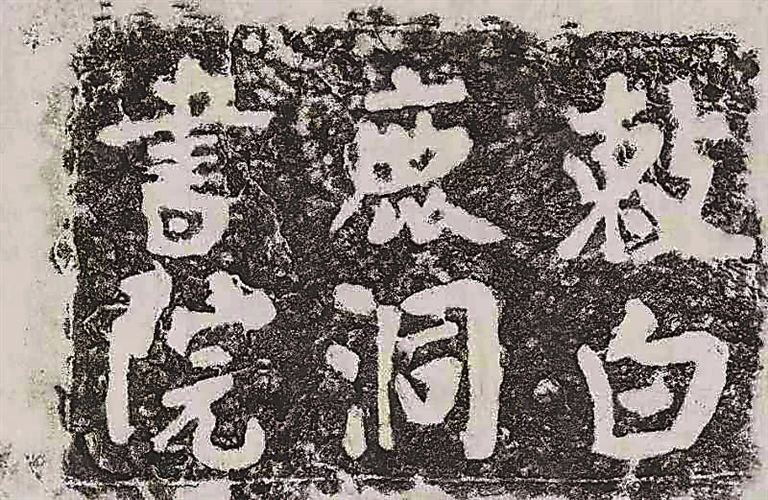 敕白
鹿洞
書院